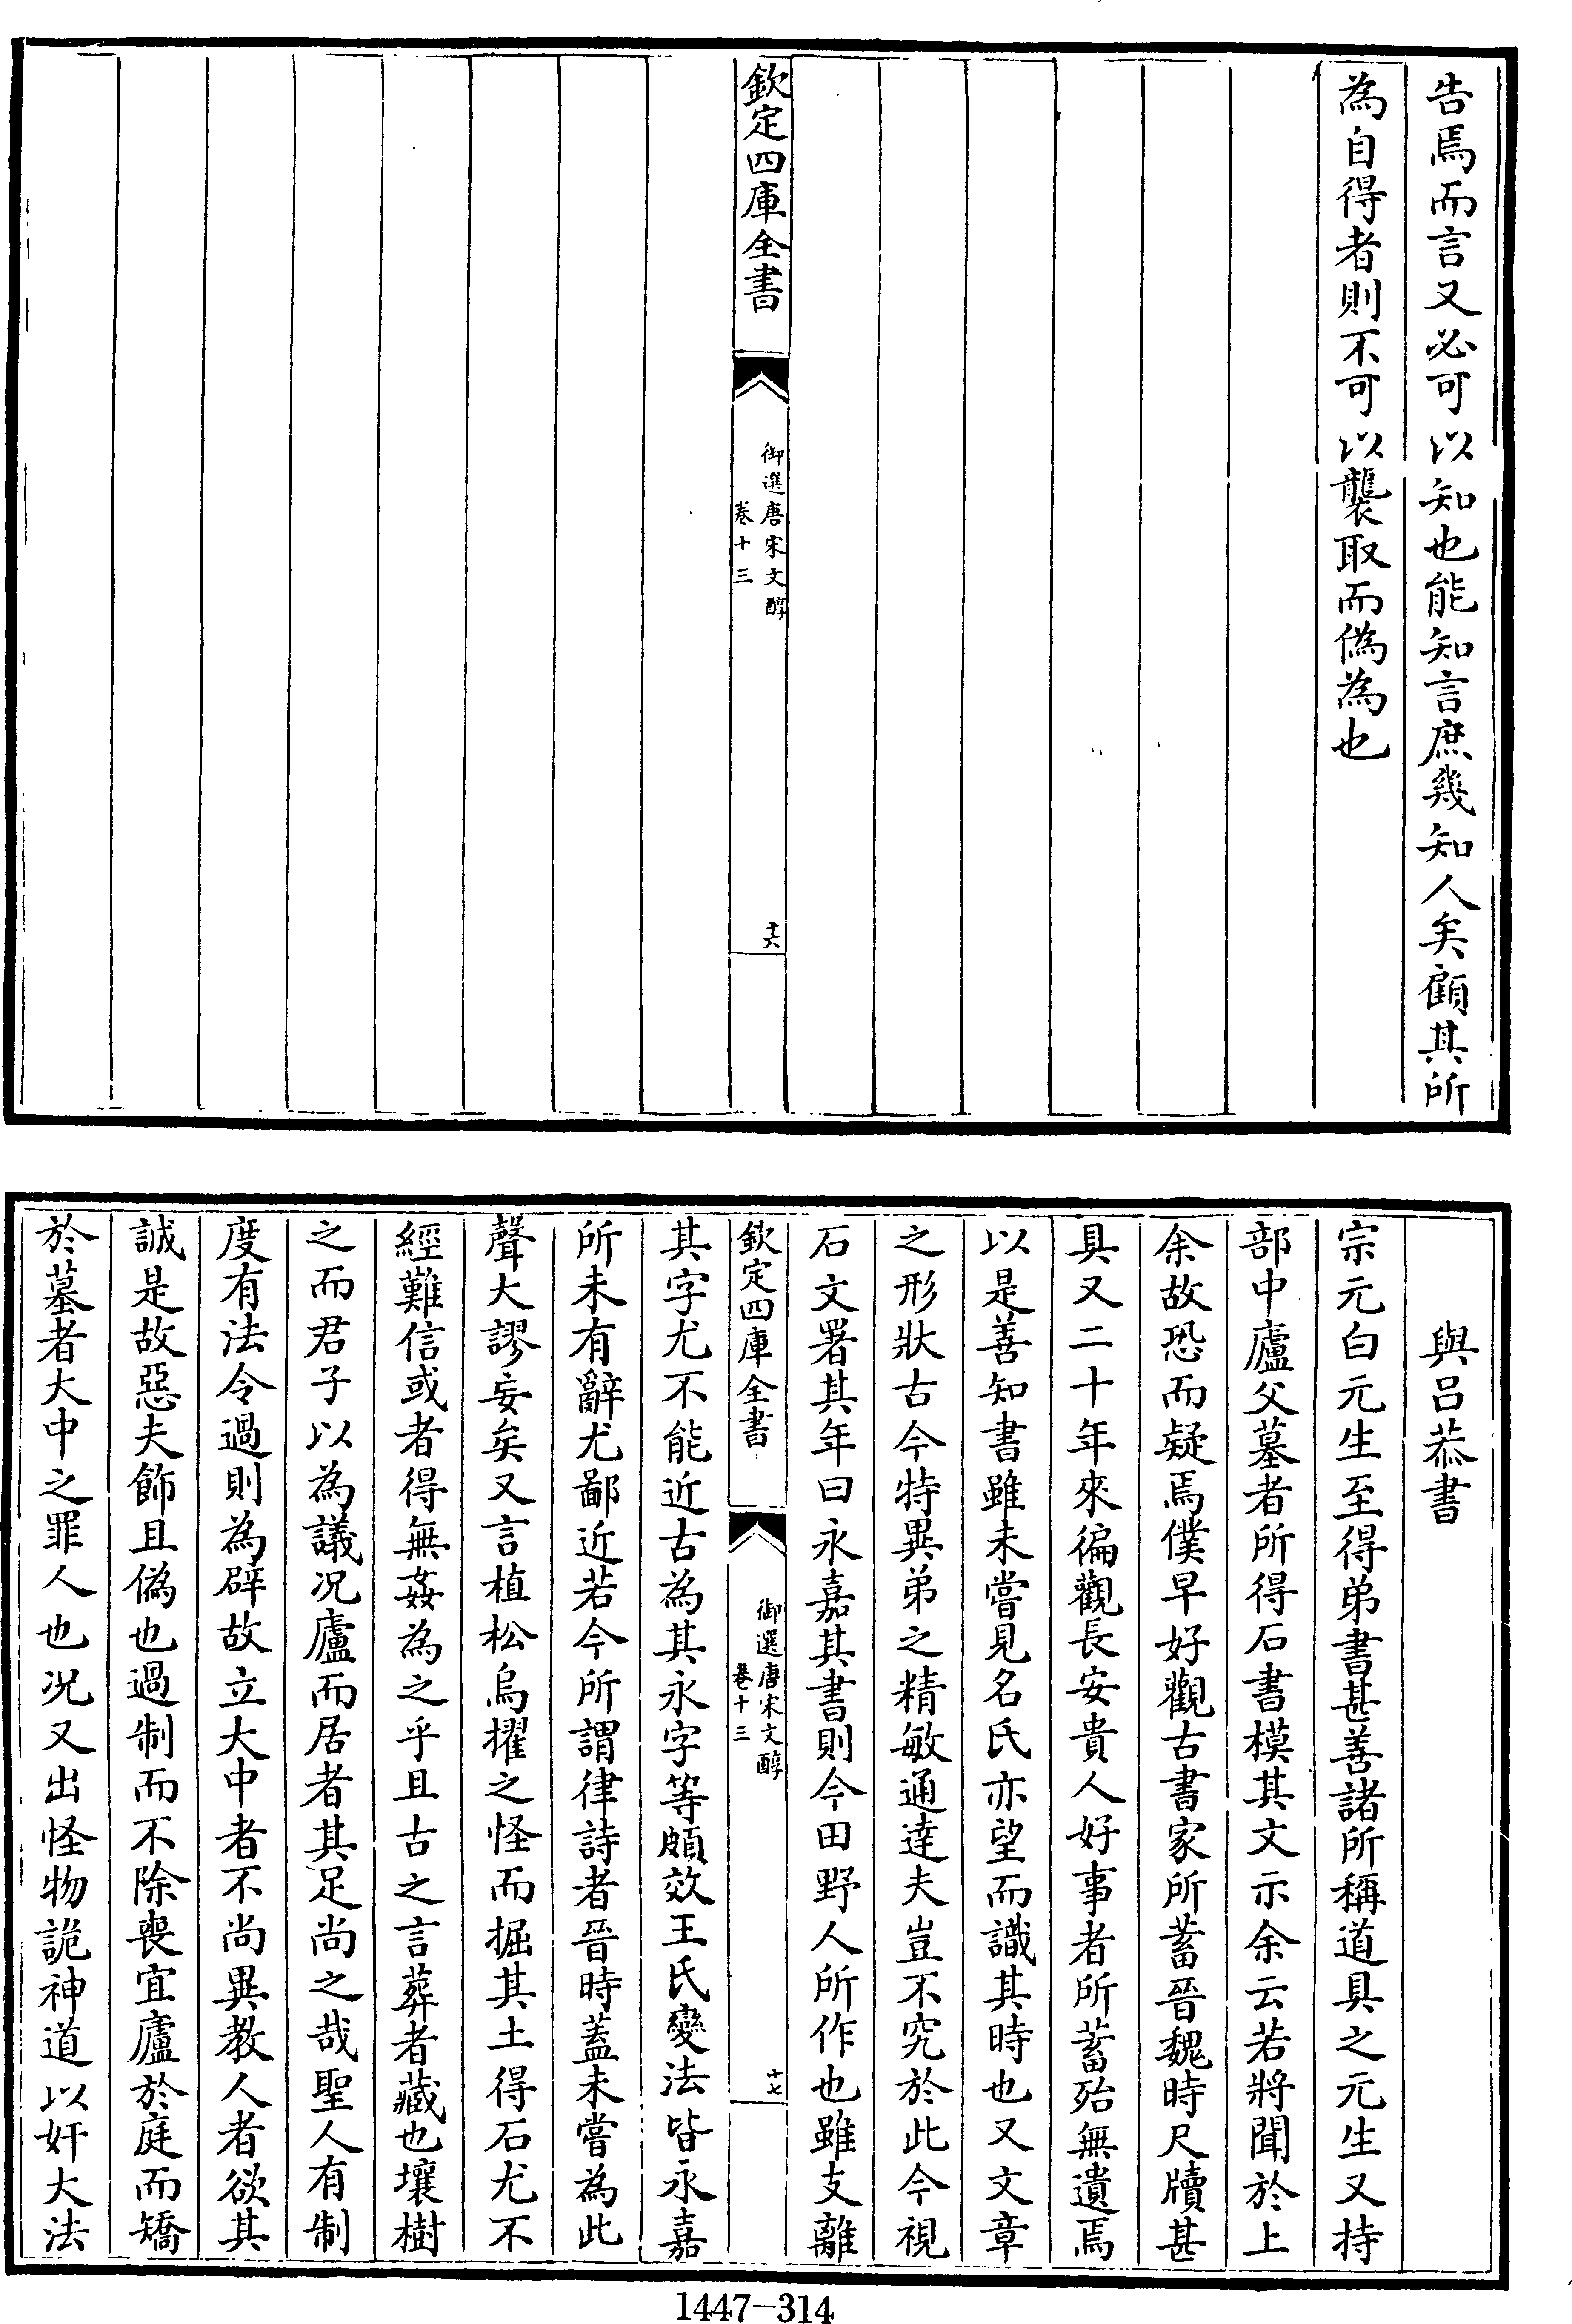 告焉而言又必可以知也能知言庶幾知人矣顧其所
為自得者則不可以襲取而偽為也
欽定四庫全書
御選唐宋文醇
卷十三
十六
與呂恭書
宗元白元生至得弟書甚善諸所稱道具之元生又持
部中廬父墓者所得石書模其文示余云若將聞於上
余故恐而疑焉僕早好觀古書家所蓄晉魏時尺牘甚
具又二十年來徧觀長安貴人好事者所蓄殆無遺焉
以是善知書雖未嘗見名氏亦望而識其時也又文章
之形狀古今特異弟之精敏通達夫豈不究於此今視
石文署其年曰永嘉其書則今田野人所作也雖支離
欽定四庫全書
御選唐宋文醇
卷十三
十七
其字尤不能近古為其永字等頗效王氏變法皆永嘉
所未有辭尤鄙近若今所謂律詩者晉時蓋未嘗為此
聲大謬妄矣又言植松烏擢之怪而掘其土得石尤不
經難信或者得無姦為之乎且古之言葬者藏也壤樹
之而君子以為議况廬而居者其足尚之哉聖人有制
度有法令過則為辟故立大中者不尚異教人者欲其
誠是故惡夫飾且偽也過制而不除喪宜廬於庭而矯
於墓者大中之罪人也况又出怪物詭神道以奸大法
1447-314